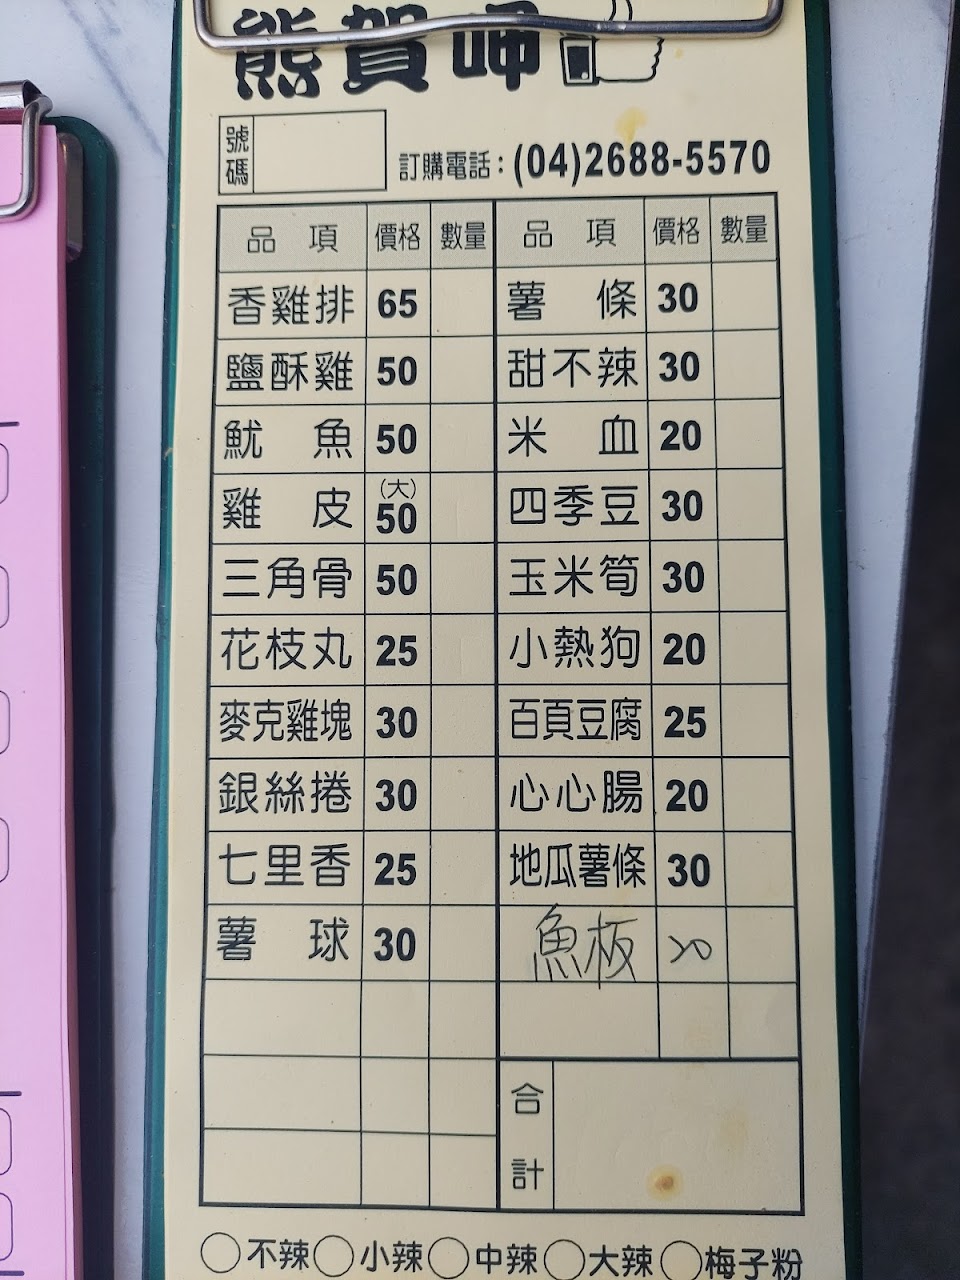 熊賀呷
號碼
訂購電話:(04)2688-5570
品項 價格 數量 品項 價格 數量
香雞排 65 薯條 30
鹽酥雞 50 甜不辣 30
魷魚 50 米血 20
雞皮 (大)50 四季豆 30
三角骨 50 玉米筍 30
花枝丸 25 小熱狗 20
麥克雞塊 30 百頁豆腐 25
銀絲捲 30 心心腸 20
七里香 25 地瓜薯條 30
薯球 30 魚板 20
合計
不辣 小辣 中辣 大辣 梅子粉